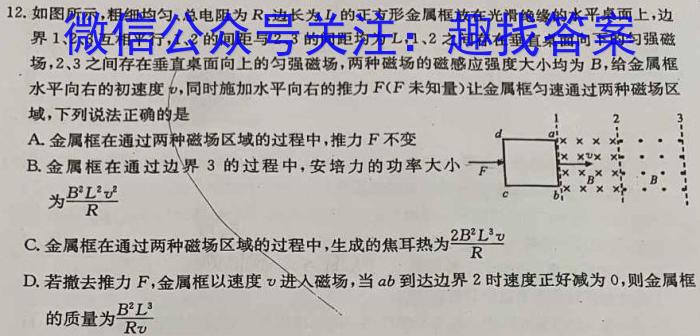 12. 如图所示,粗细均匀、总电阻为 R、边长为 L 的正方形金属框放在光滑绝缘的水平桌面上,边
界 1、2、3 互相平行,1、2 的间距与 2、3 的间距均为 L,1、2 之间存在垂直桌面向下的匀强磁
微信公众号关注:趣找答案
场,2、3 之间存在垂直桌面向上的匀强磁场,两种磁场的磁感应强度大小均为 B,给金属框
水平向右的初速度 v,同时施加水平向右的推力 F(F 未知量)让金属框匀速通过两种磁场区
域,下列说法正确的是
A. 金属框在通过两种磁场区域的过程中,推力 F 不变
B. 金属框在通过边界 3 的过程中,安培力的功率大小
为 B²L²v²/R
C. 金属框在通过两种磁场区域的过程中,生成的焦耳热为 2B²L³v/R
D. 若撤去推力 F,金属框以速度 v 进入磁场,当 ab 到达边界 2 时速度正好减为 0,则金属框
的质量为 B²L³/Rv
1 2 3
d a
v
F B B
c b